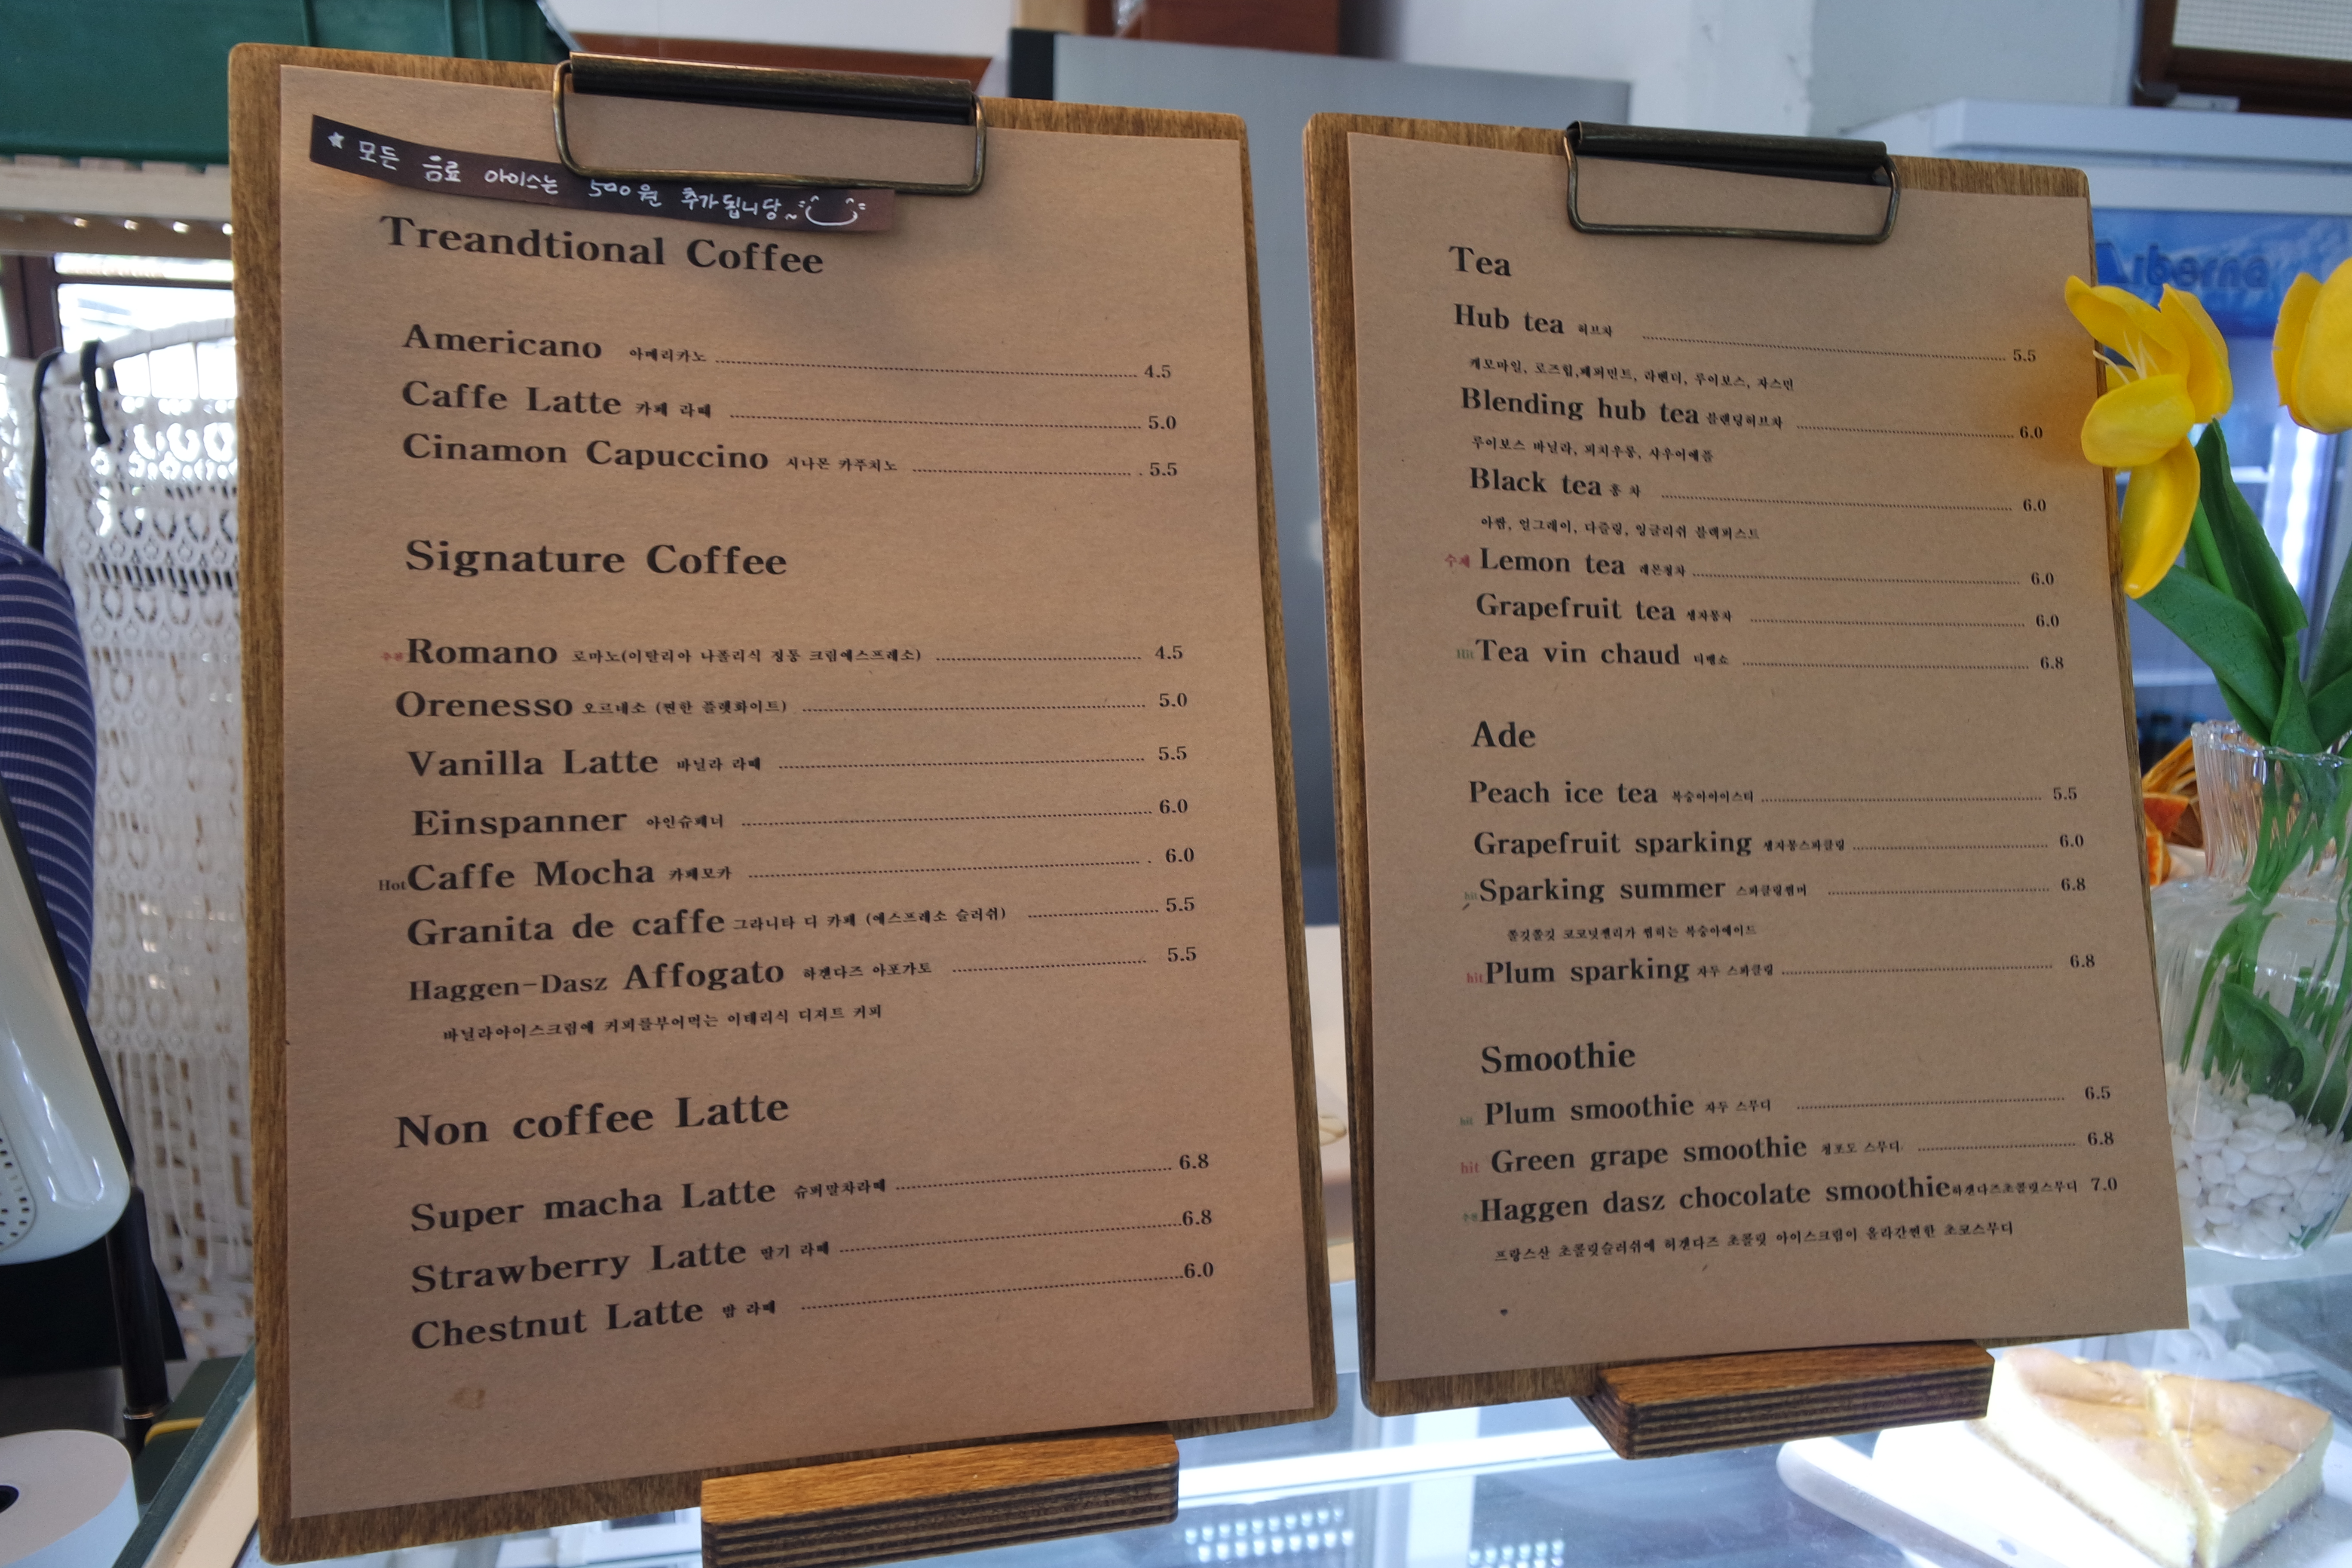 ★ 모든 음료 아이스는 500원 추가됩니당~
Treandtional Coffee
Americano 아메리카노 4.5
Caffe Latte 카페 라떼 5.0
Cinamon Capuccino 시나몬 카푸치노 5.5
Signature Coffee
Romano 로마노(이탈리아 나폴리식 정통 크림에스프레소) 4.5
Orenesso 오르네소 (찐한 플랫화이트) 5.0
Vanilla Latte 바닐라 라떼 5.5
Einspanner 아인슈페너 6.0
Hot Caffe Mocha 카페모카 6.0
Granita de caffe 그라니타 디 카페 (에스프레소 슬러쉬) 5.5
Haggen-Dasz Affogato 하겐다즈 아포가토 5.5
바닐라아이스크림에 커피를부어먹는 이테리식 디저트 커피
Non coffee Latte
Super macha Latte 슈퍼말차라떼 6.8
Strawberry Latte 딸기 라떼 6.8
Chestnut Latte 밤 라떼 6.0
Tea
Hub tea 허브차 5.5
캐모마일, 로즈힙,페퍼민트, 라벤더, 루이보스, 자스민
Blending hub tea 블랜딩허브차 6.0
루이보스 바닐라, 피치우롱, 사우이애플
Black tea 홍 차 6.0
아쌈, 얼그레이, 다즐링, 잉글리쉬 블랙퍼스트
수제 Lemon tea 레몬청차 6.0
Grapefruit tea 생자몽차 6.0
Hit Tea vin chaud 티뱅쇼 6.8
Ade
Peach ice tea 복숭아아이스티 5.5
Grapefruit sparking 생자몽스파클링 6.0
hit Sparking summer 스파클링썸머 6.8
쫄깃쫄깃 코코넛젤리가 씹히는 복숭아에이드
hit Plum sparking 자두 스파클링 6.8
Smoothie
hit Plum smoothie 자두 스무디 6.5
hit Green grape smoothie 청포도 스무디 6.8
Haggen dasz chocolate smoothie 하겐다즈초콜릿스무디 7.0
프랑스산 초콜릿슬러쉬에 허겐다즈 초콜릿 아이스크림이 올라간찐한 초코스무디